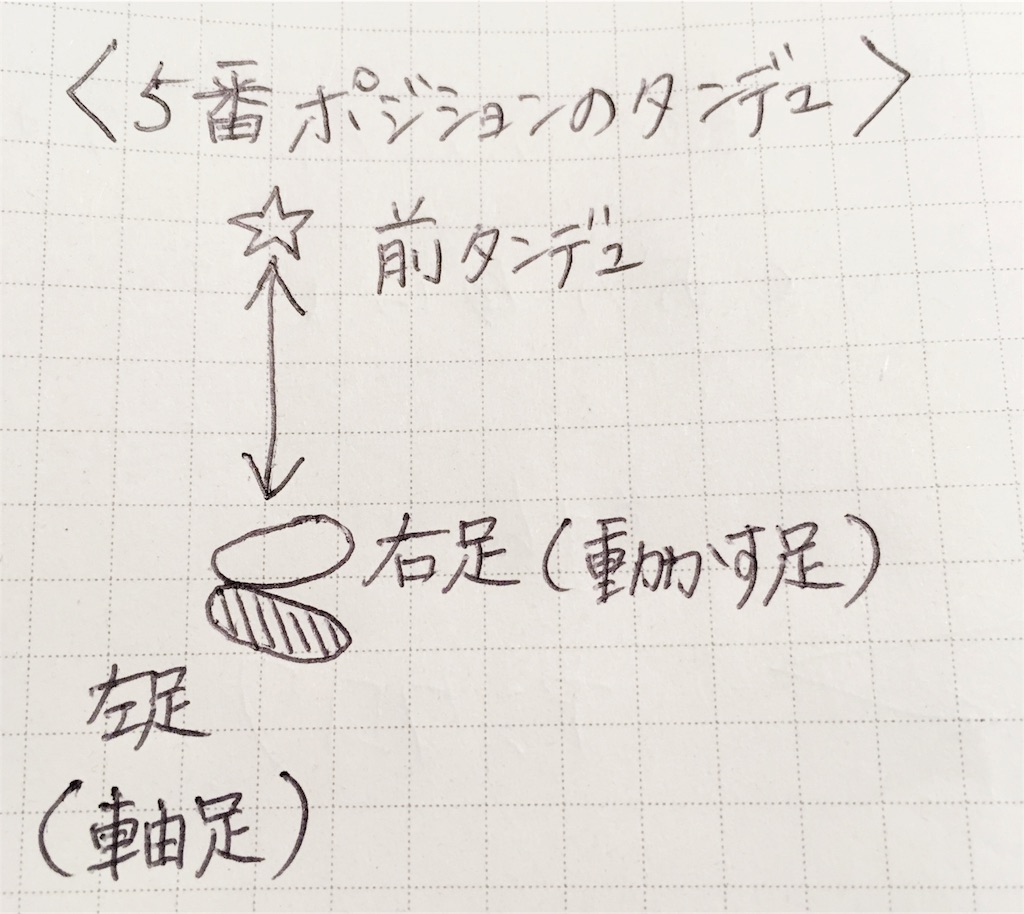 〈5番ポジションのタンデュ〉
前タンデュ
右足(動かす足)
左足
(軸足)